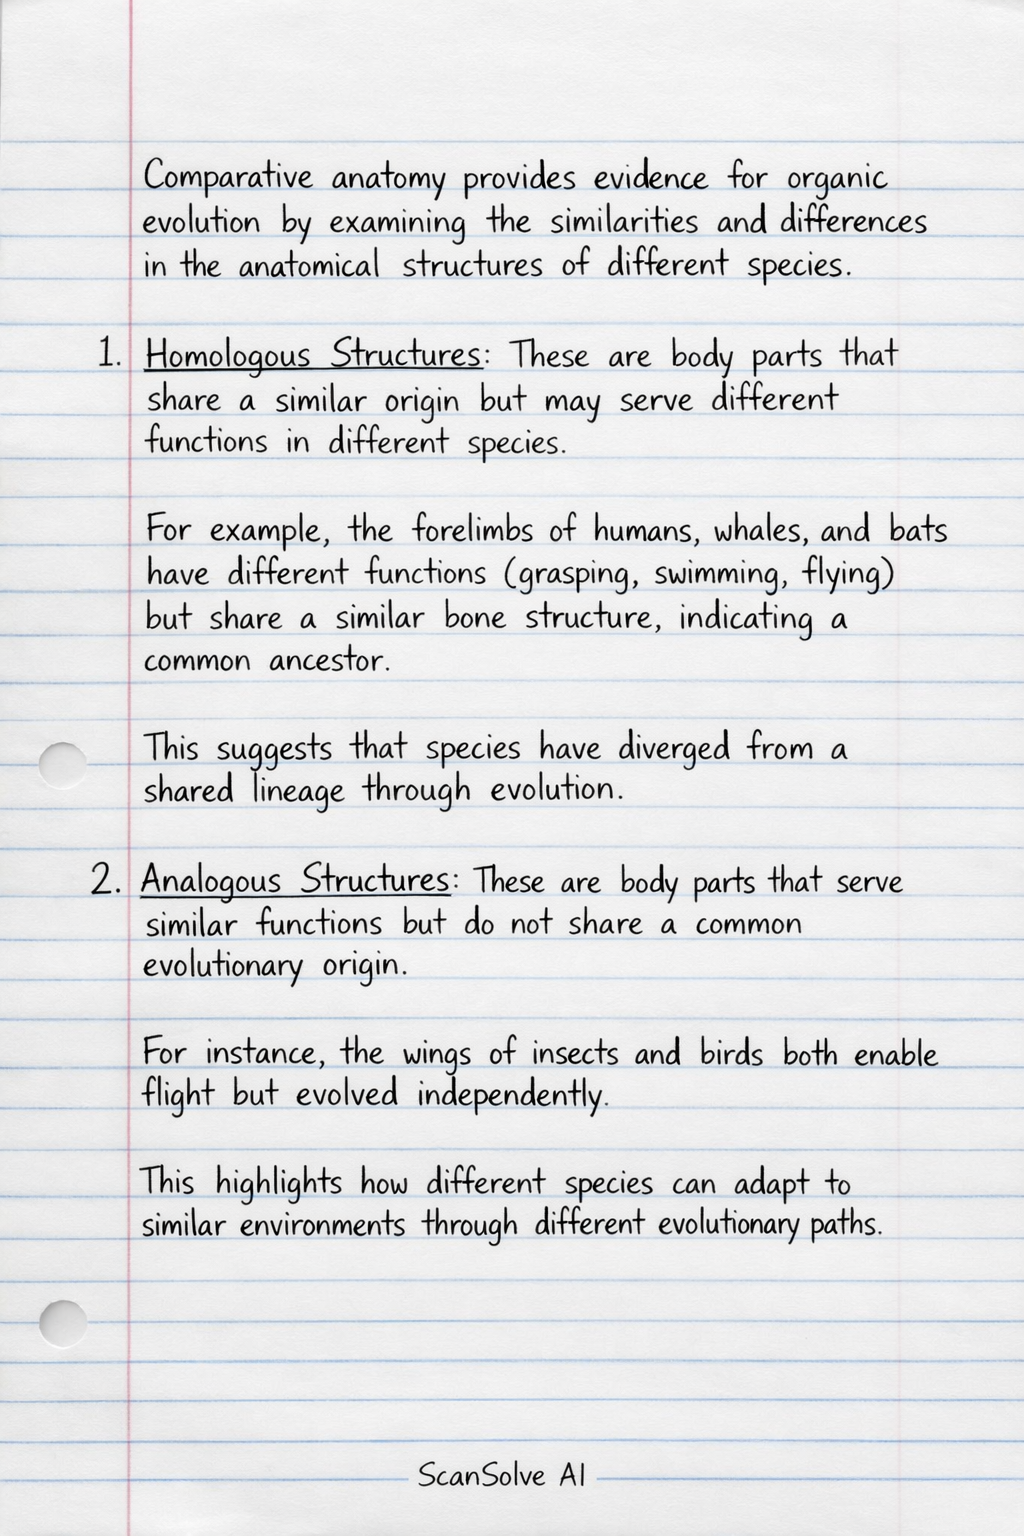 Comparative anatomy provides evidence for organic
evolution by examining the similarities and differences
in the anatomical structures of different species.
1. Homologous Structures: These are body parts that
share a similar origin but may serve different
functions in different species.
For example, the forelimbs of humans, whales, and bats
have different functions (grasping, swimming, flying)
but share a similar bone structure, indicating a
common ancestor.
This suggests that species have diverged from a
shared lineage through evolution.
2. Analogous Structures: These are body parts that serve
similar functions but do not share a common
evolutionary origin.
For instance, the wings of insects and birds both enable
flight but evolved independently.
This highlights how different species can adapt to
similar environments through different evolutionary paths.
ScanSolve AI